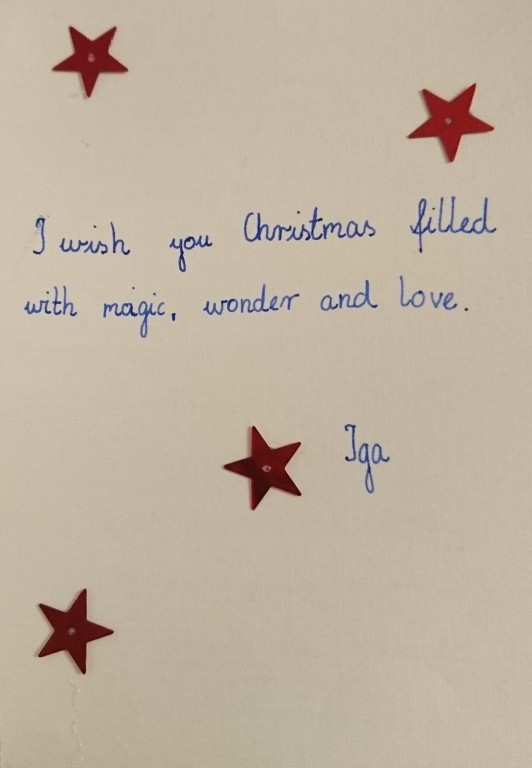 I wish you Christmas filled
with magic, wonder and love.
Iga